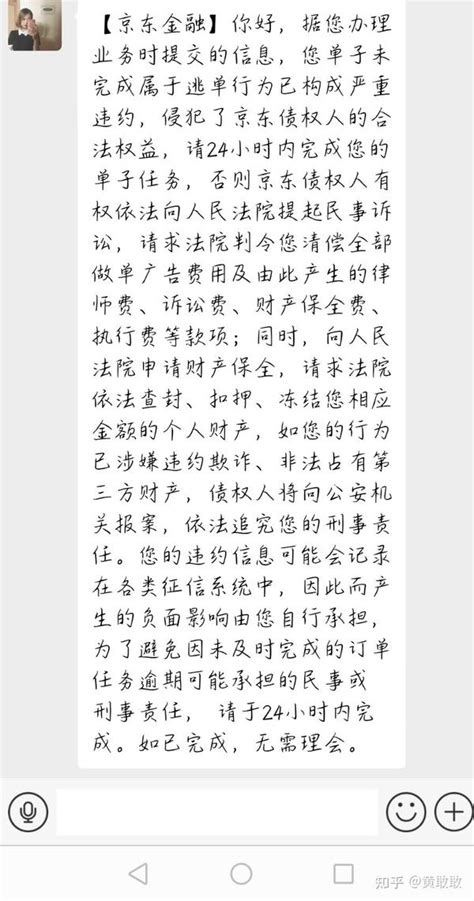 【京东金融】你好，据您办理
业务时提交的信息，您单子未
完成属于逃单行为已构成严重
违约，侵犯了京东债权人的合
法权益，请24小时内完成您的
单子任务，否则京东债权人有
权依法向人民法院提起民事诉
讼，请求法院判令您清偿全部
做单广告费用及由此产生的律
师费、诉讼费、财产保全费、
执行费等款项；同时，向人民
法院申请财产保全，请求法院
依法查封、扣押、冻结您相应
金额的个人财产，如您的行为
已涉嫌违约欺诈、非法占有第
三方财产，债权人将向公安机
关报案，依法追究您的刑事责
任。您的违约信息可能会记录
在各类征信系统中，因此而产
生的负面影响由您自行承担，
为了避免因未及时完成的订单
任务逾期可能承担的民事或
刑事责任， 请于24小时内完
成。如已完成，无需理会。
知乎 @黄敢敢